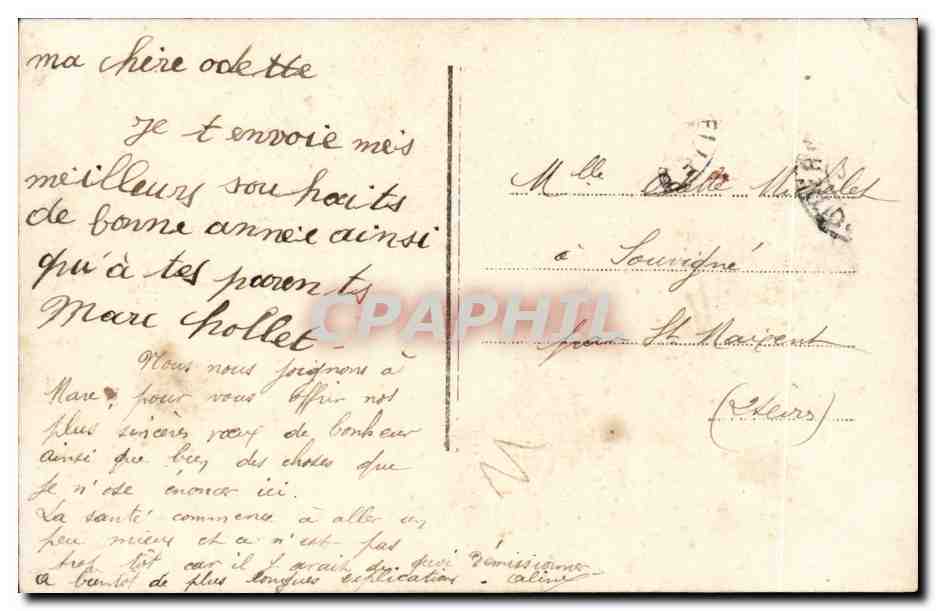 ma chère odette
Je t envoie mes
meilleurs souhaits
de bonne année ainsi
qu'à tes parents
Marc Chollet
Nous nous joignons à
Marc, pour vous offrir nos
plus sincères vœux de bonheur
ainsi que bien des choses que
je n'ose énoncer ici.
La santé commence à aller un
peu mieux et ce n'est pas
trop tôt car il y avait de quoi démissionner
a bientôt de plus longues explications. Aline
Mlle Odette
à Souvigné
par St Maixent
(2 Sèvres)
CPAPHIL